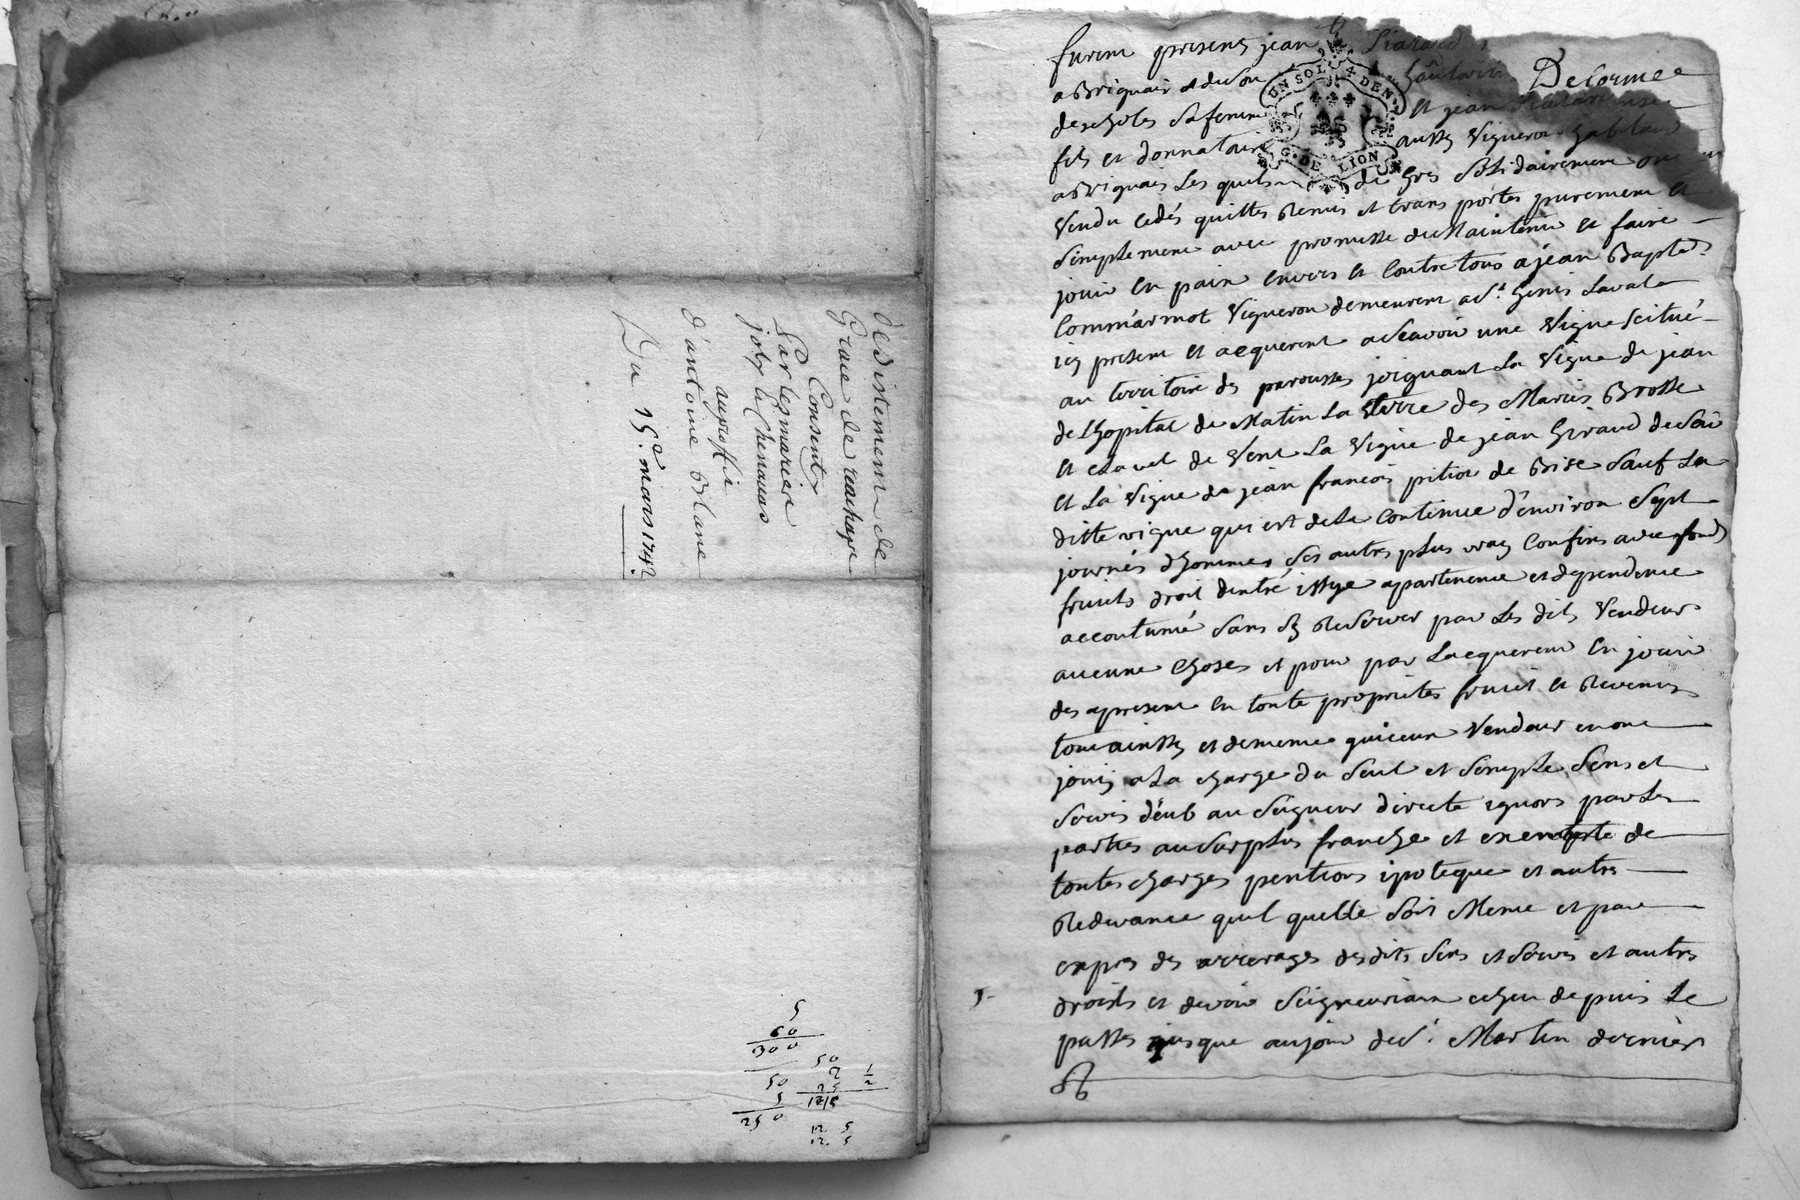 desistement de
Grace de rachapt
Consenty
Par les mariés
joly et Chenavas
auproffit
d'antoine Blanc
Du 15e mars 1742
5
60
300
50
5
250
50
2
25
1/2
12 5
12 5
furent presens jean Delorme
a Brignais et du
de sa femme et jean
fils et donnataire aussy Vigneron habitant
a Brignais Les quels de gres solidairement ont
Vendu cedés quittés Remis et transportés purement et
simplement avec promesse de Maintenir et faire
jouir en paix envers et contre tous a jean Bapte
Commarmot Vigneron demeurent a St genis Laval
icy present et acquerent a scavoir une Vigne scitué
au territoire des joignant La Vigne de jean
de Lhopital de Matin La terre des Mariés Brosse
et Clavel de Vent La Vigne de jean Giraud de soir
et La Vigne de jean francois pitiot de Bise sauf La
ditte vigne qui est de La Contenue d'environ sept
journés d'hommes ses autres plus vray Confins avec fond
fruits droit dentré issye apartenence et dependence
accoutumé sans sy Reserver par Les dits Vendeurs
aucune Choses et pour par Lacquereur En jouir
des apresent En toute proprietés fruict et Revenus
tout ainssy et dememe quiceux Vendeur en ont
jouis a La charge du seul et simple sens et
servis deub au seigneur directe ignors par Les
parties au surplus franche et exempte de
toutes charges pentions ipoteque et autre
Redevance quel quelle soit Meme et par
expres des arrerages desdits sens et servis et autres
droits et devoir seigneuriaux echeu depuis Le
passes jusque aujour de St Martin dernier
UN SOL 4 DEN.
G. DE LION